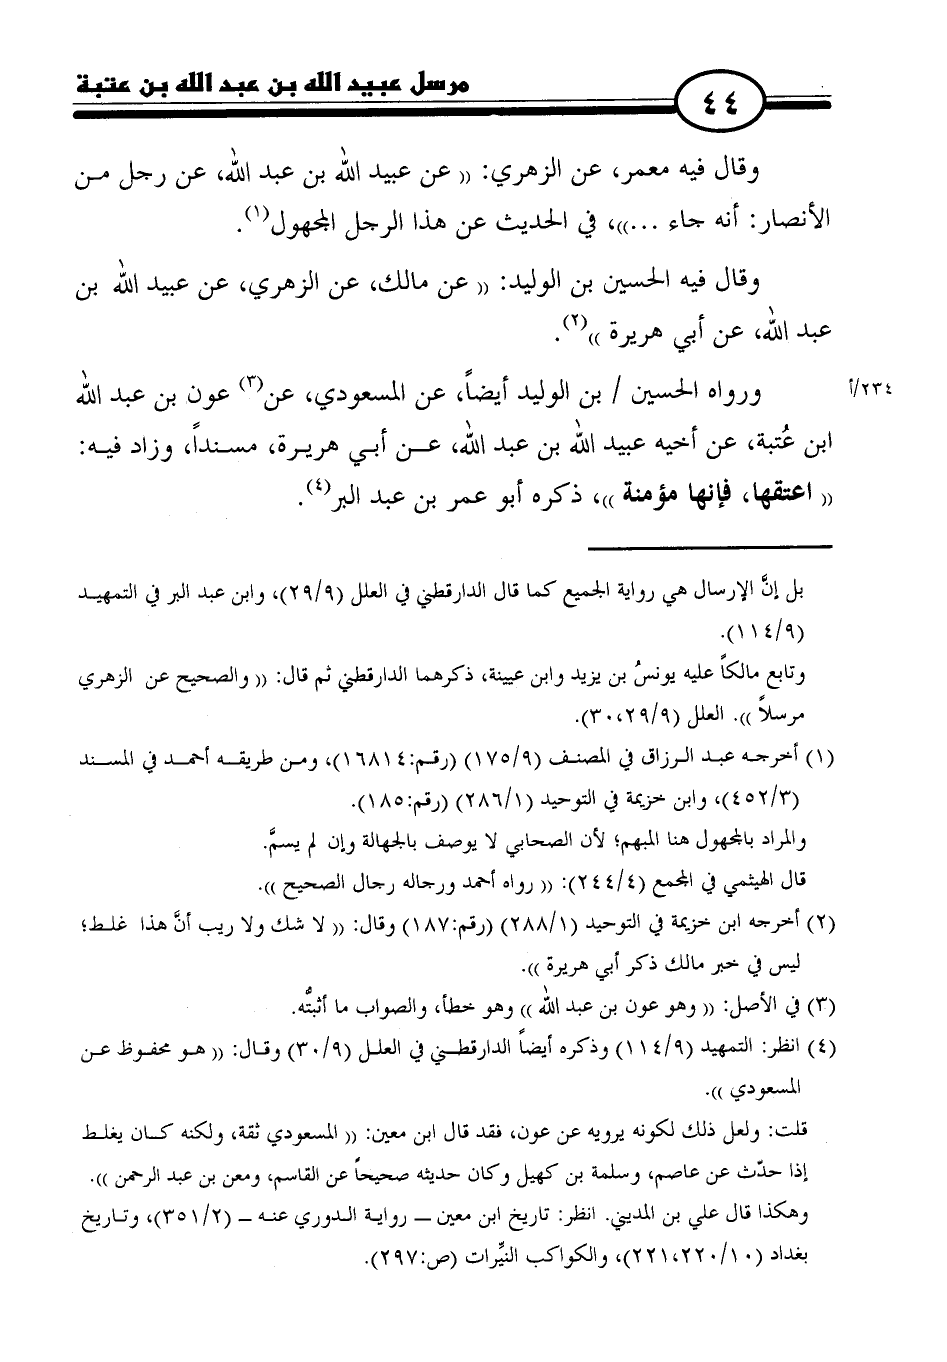 ٤٤ مرسل عبيد الله بن عبد الله بن عتبة
وقال فيه معمر، عن الزهري: (( عن عبيد الله بن عبد الله، عن رجل من
الأنصار: أنه جاء ...))، في الحديث عن هذا الرجل المجهول(١).
وقال فيه الحسين بن الوليد: (( عن مالك، عن الزهري، عن عبيد الله بن
عبد الله، عن أبي هريرة ))(٢).
ورواه الحسين / بن الوليد أيضاً، عن المسعودي، عن(٣) عون بن عبد الله ٢٣٤/أ
ابن عُتبة، عن أخيه عبيد الله بن عبد الله، عـن أبـي هريـرة، مسـنداً، وزاد فيـه:
(( اعتقها، فإنها مؤمنة ))، ذكره أبو عمر بن عبد البر(٤).
بل إنَّ الإرسال هي رواية الجميع كما قال الدارقطني في العلل (٢٩/٩)، وابن عبد البر في التمهيـد
(١١٤/٩).
وتابع مالكاً عليه يونسُ بن يزيد وابن عيينة، ذكرهما الدارقطني ثم قال: (( والصحيح عن الزهري
مرسلاً )). العلل (٣٠،٢٩/٩).
(١) أخرجـه عبـد الـرزاق في المصنف (١٧٥/٩) (رقـم:١٦٨١٤)، ومـن طريقـه أحمـد في المسند
(٤٥٢/٣)، وابن خزيمة في التوحيد (٢٨٦/١) (رقم:١٨٥).
والمراد بالمجهول هنا المبهم؛ لأن الصحابي لا يوصف بالجهالة وإن لم يسمَّ.
قال الهيثمي في المجمع (٢٤٤/٤): (( رواه أحمد ورجاله رجال الصحيح )).
(٢) أخرجه ابن خزيمة في التوحيد (٢٨٨/١) (رقم:١٨٧) وقال: (( لا شك ولا ريب أنَّ هذا غلط؛
ليس في خبر مالك ذكر أبي هريرة )).
(٣) في الأصل: (( وهو عون بن عبد الله )) وهو خطأ، والصواب ما أثبتُّه.
(٤) انظر: التمهيد (١١٤/٩) وذكره أيضاً الدارقطـني في العلـل (٣٠/٩) وقـال: (( هـو محفوظ عـن
المسعودي )).
قلت: ولعل ذلك لكونه يرويه عن عون، فقد قال ابن معين: (( المسعودي ثقة، ولكنه كـان يغلـط
إذا حدّث عن عاصم، وسلمة بن كهيل وكان حديثه صحيحاً عن القاسم، ومعن بن عبد الرحمن )).
وهكذا قال علي بن المديني. انظر: تاريخ ابن معين ــ رواية الـدوري عنـه ــ (٣٥١/٢)، وتـاريخ
بغداد (٢٢١،٢٢٠/١٠)، والكواكب النيِّرات (ص:٢٩٧).